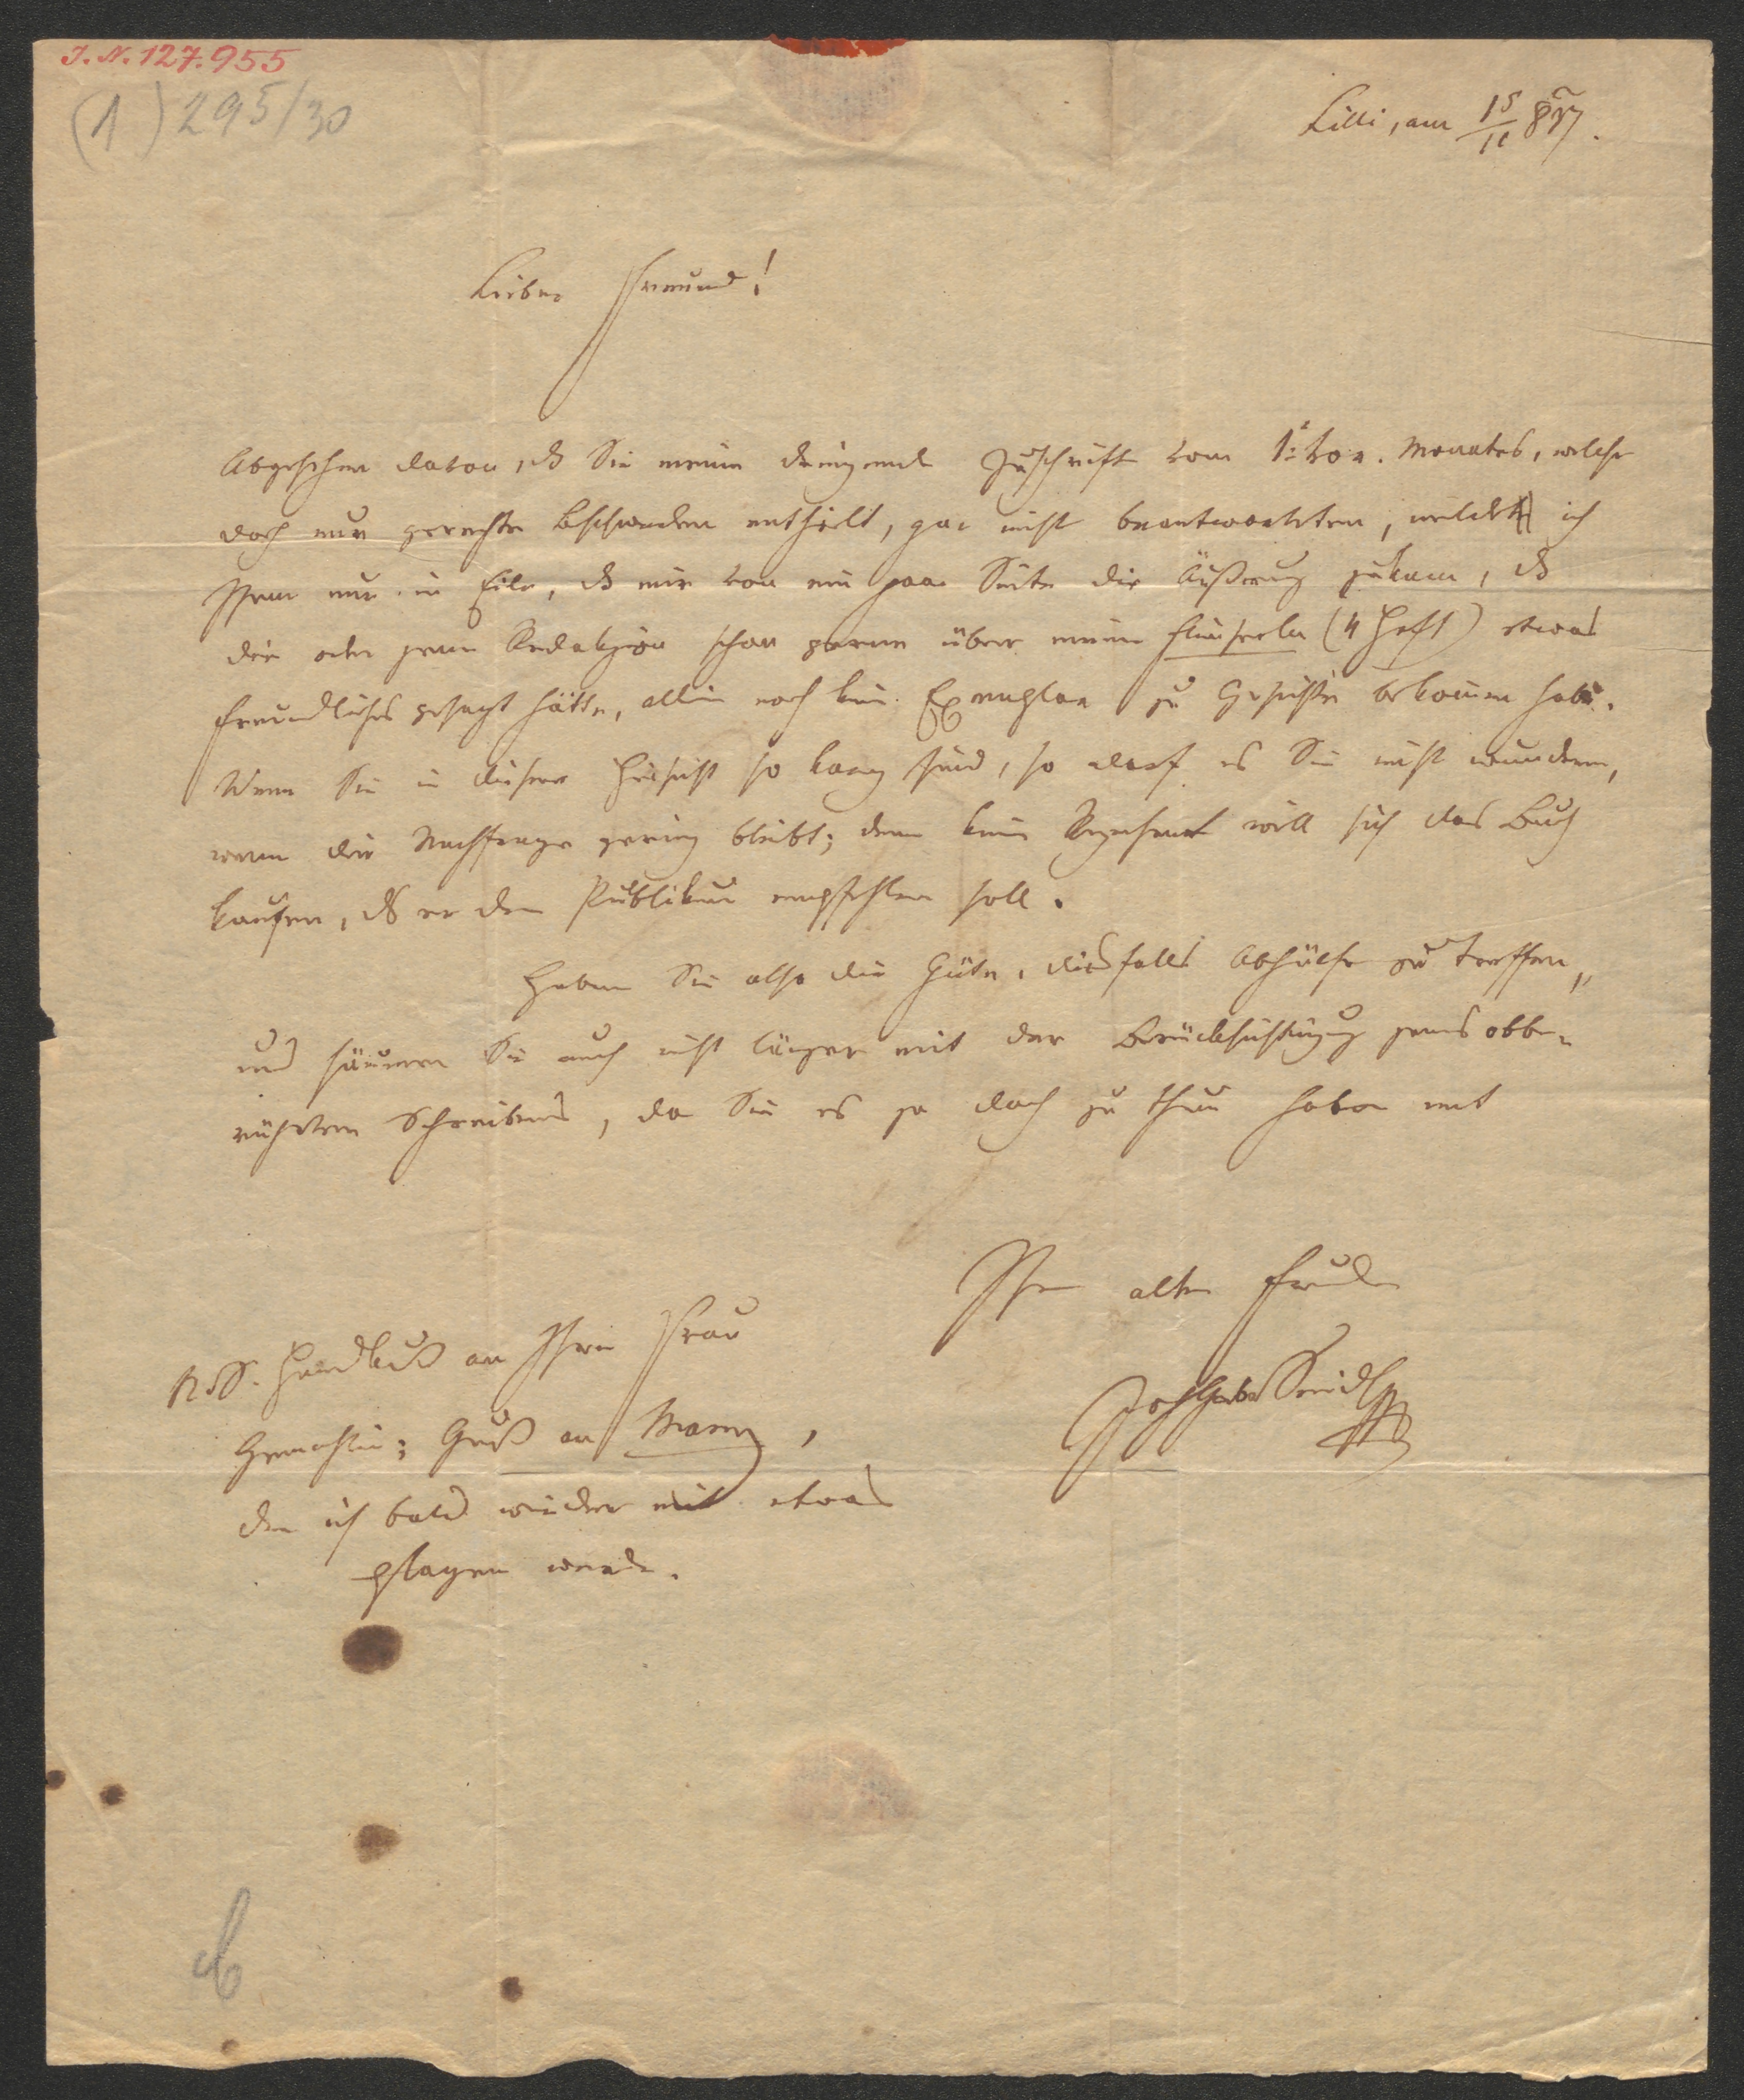 I. N. 127.955
(1) 295/30
Cilli, am 15/11 837.
Lieber Freund!
Abgesehen davon, dß Sie meine dringende Zuschrift vom 1t vor. Monates, welche
doch nur gerechte Beschwerden enthielt, gar nicht beantworteten, meldet ich
Ihnen nur in Eile, dß mir von ein paar Seite die Äußerung zukam, dß
die oder jene Redakzion schon gerne über meine Flinserln (4 Heft) etwas
freundliches gesagt hätte, allein noch kein Exemplar zu Gesichte bekomen habe.
Wenn Sie in dieser Hinsicht so karg sind, so darf es Sie nicht wundern,
wenn die Nachfrage gering bleibt; denn kein Rezensent will sich das Buch
kaufen, dß er dem Publikum empfehlen soll.
Haben Sie also die Güte, diesfalls Abhülfe zu treffen,
und säumen Sie auch nicht länger mit der Berücksichtigung jenes obbe-
rührten Schreibens, da Sie es ja doch zu thun haben mit
Ihrem alten Freunde
JohGabrSeidl
N. S. Handkuß an Ihre Frau
Gemahlin; Gruß an Manz,
den ich bald wieder mit etwas
plagen werde.